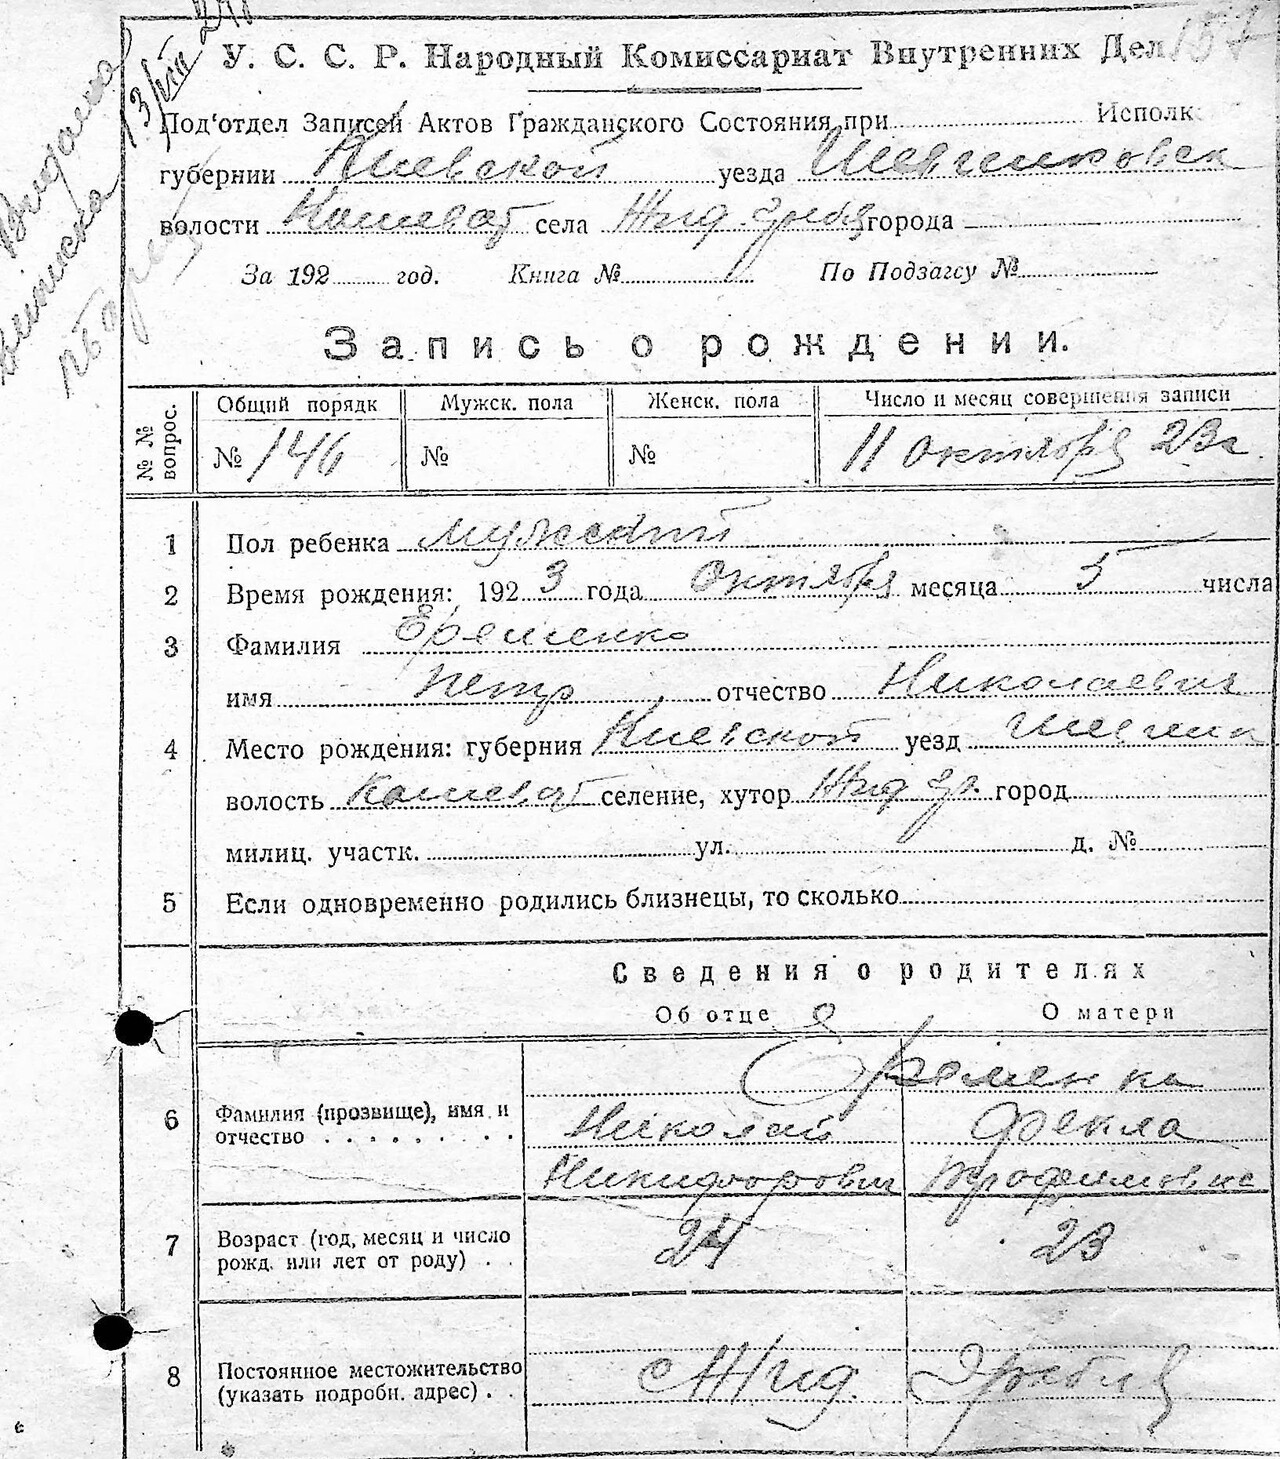 У. С. С. Р. Народный Комиссариат Внутренних Дел 157
Видана
выписка
13/VIII
Под‘отдел Записей Актов Гражданского Состояния при Исполк
губернии Киевской уезда Шевченковск
волости Кошеват села Жид Гребля города
За 192 год. Книга № По Подзагсу №
Запись о рождении.
№ № вопрос.
Общий порядк Мужск. пола Женск. пола Число и месяц совершения записи
№ 146 № № 11 октября 23г.
1 Пол ребенка мужский
2 Время рождения: 1923 года Октября месяца 5 числа
3 Фамилия Еременко
имя Петр отчество Николаевич
4 Место рождения: губерния Киевской уезд Шевчен
волость Кошеват селение, хутор Жид Гр. город
милиц. участк. ул. д. №
5 Если одновременно родились близнецы, то сколько
Сведения о родителях
Об отце О матери
Еременко
6 Фамилия (прозвище), имя и
отчество . . . . . . . .
Николай Фекла
Никифорович Трофимовна
7 Возраст (год, месяц и число
рожд. или лет от роду) . .
24 23
8 Постоянное местожительство
(указать подробн. адрес) . .
с Жид. Гребля